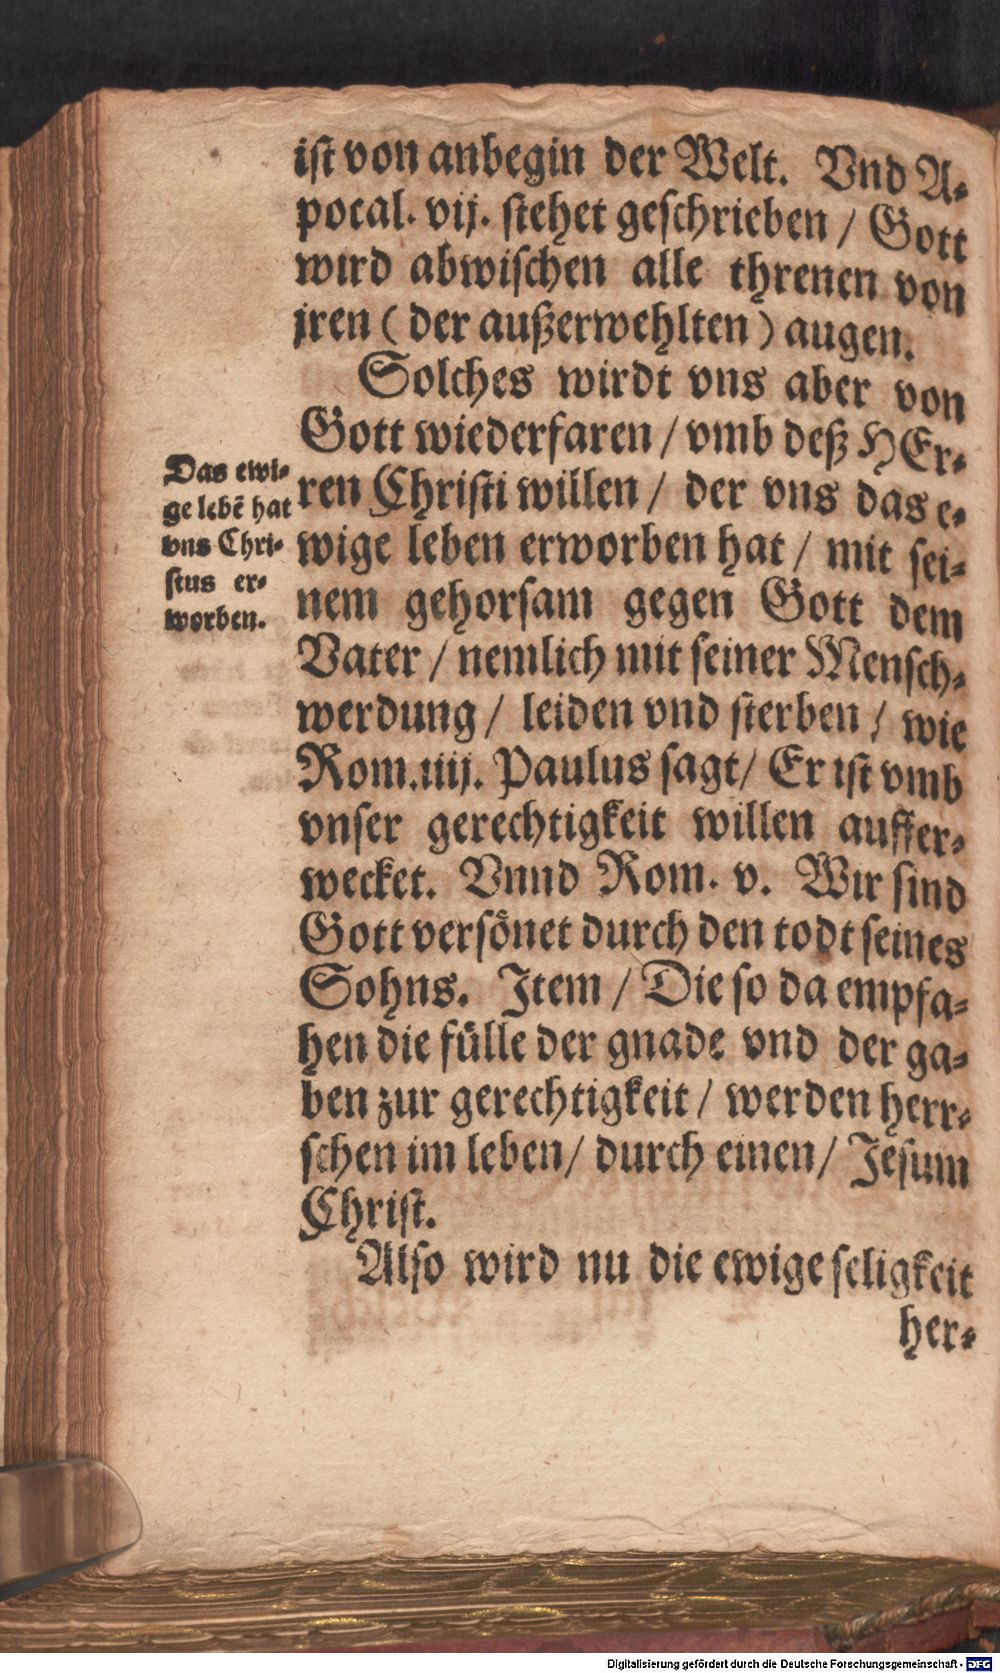 ist von anbegin der Welt. Vnd A-
pocal. vij. stehet geschrieben / Gott
wird abwischen alle threnen von
jren ( der außerwehlten ) augen.
Solches wirdt vns aber von
Gott wiederfaren / vmb deß HEr-
ren Christi willen / der vns das e-
wige leben erworben hat / mit sei-
nem gehorsam gegen Gott dem
Vater / nemlich mit seiner Mensch-
werdung / leiden vnd sterben / wie
Rom. iiij. Paulus sagt / Er ist vmb
vnser gerechtigkeit willen auffer-
wecket. Vnnd Rom. v. Wir sind
Gott versönet durch den todt seines
Sohns. Item / Die so da empfa-
hen die fülle der gnade vnd der ga-
ben zur gerechtigkeit / werden herr-
schen im leben / durch einen / Jesum
Christ.
Also wird nu die ewige seligkeit
her-
Das ewi-
ge lebē hat
vns Chri-
stus er-
worben.
Digitalisierung gefördert durch die Deutsche Forschungsgemeinschaft - DFG